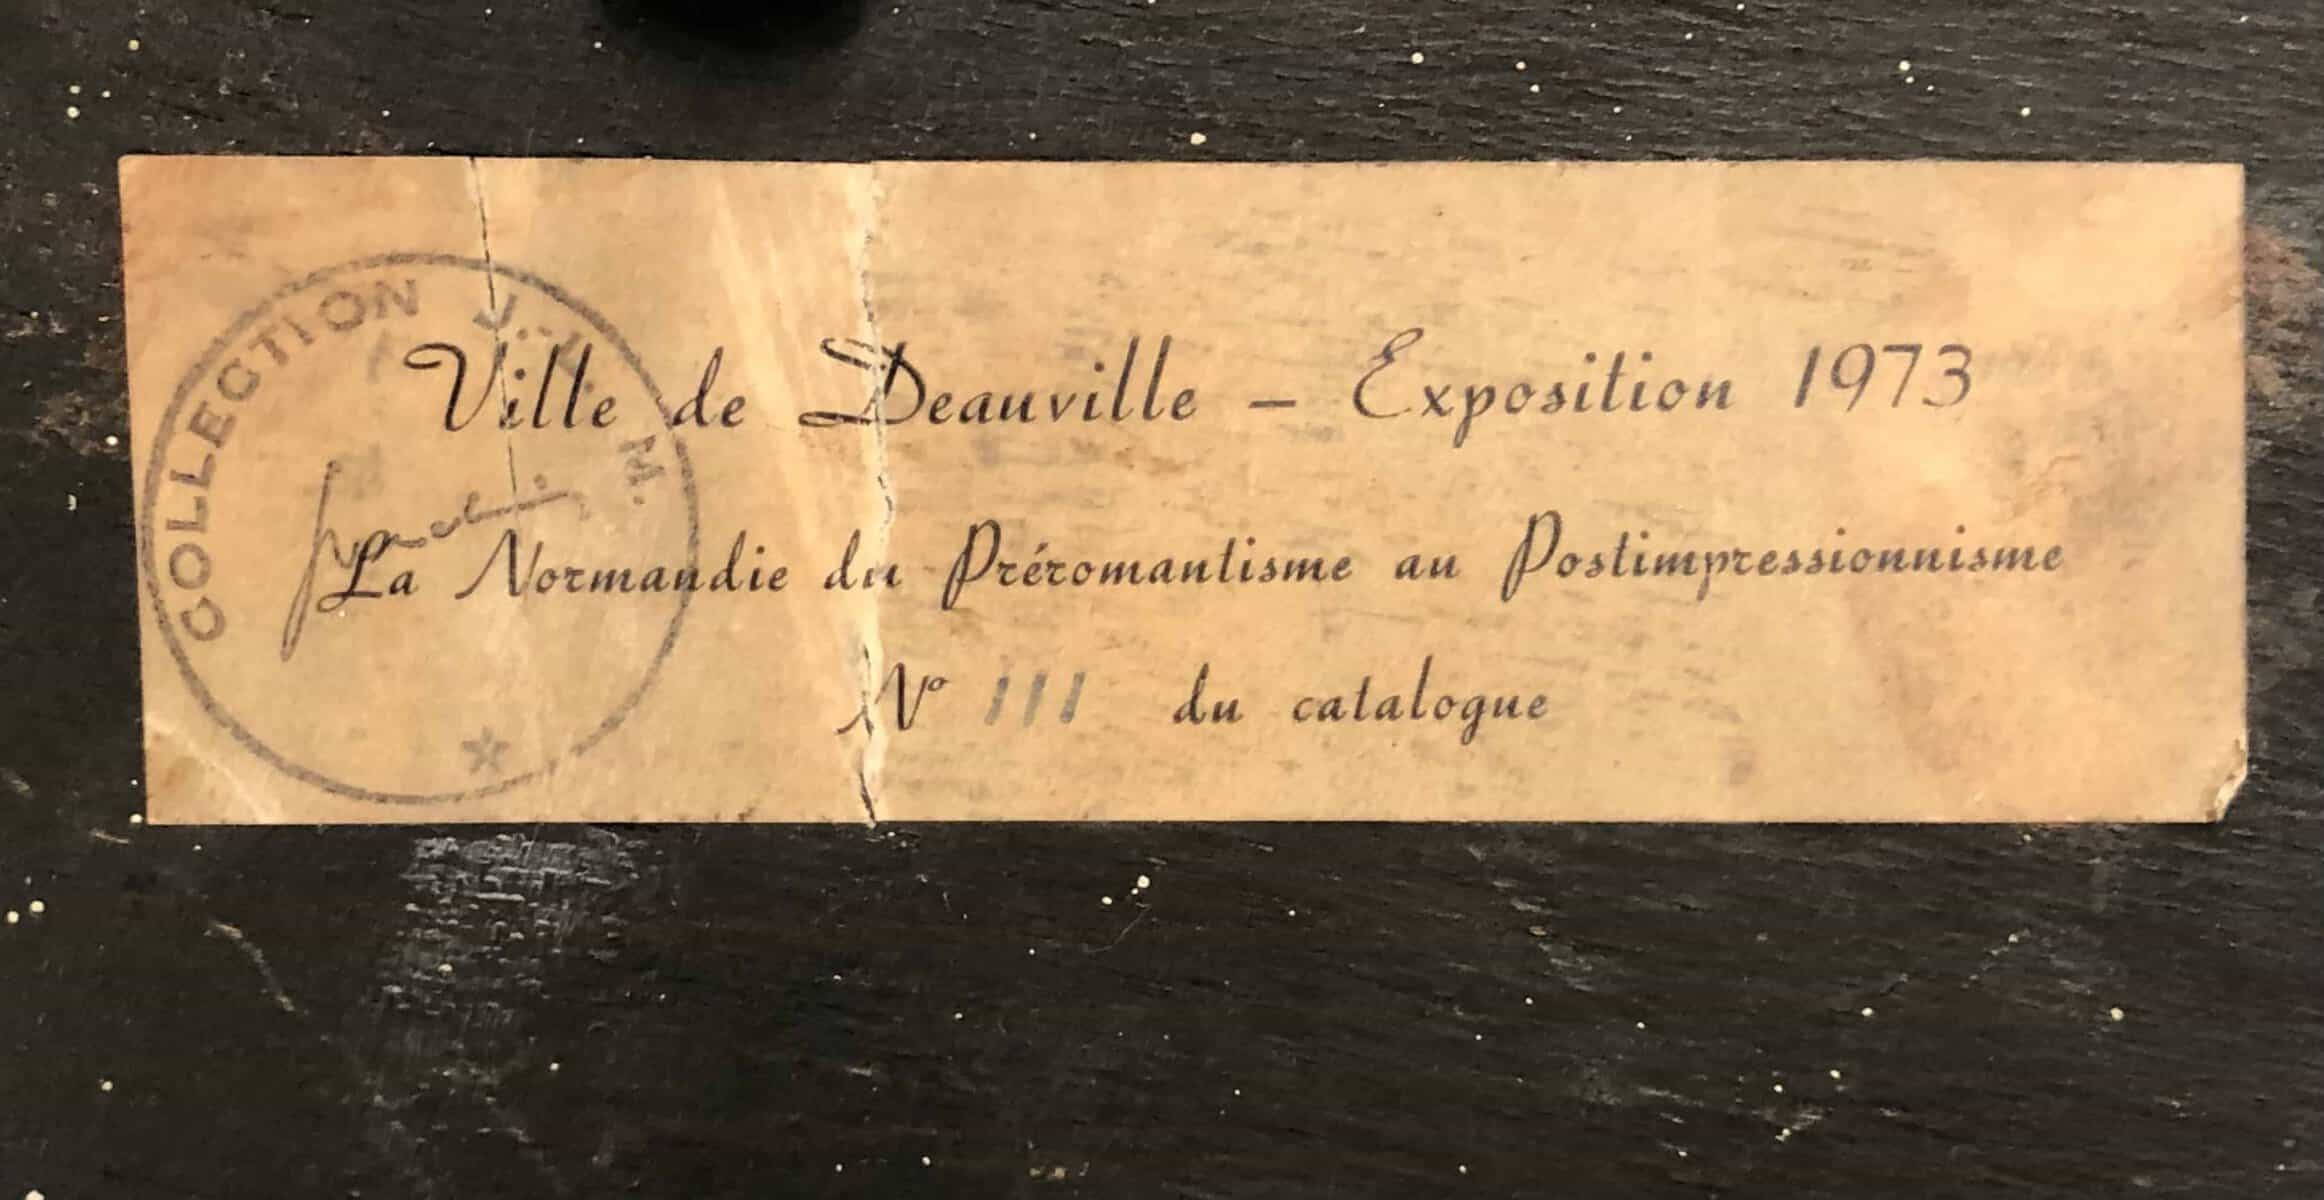 COLLECTION J.-L. M.
Ville de Deauville – Exposition 1973
La Normandie du Préromantisme au Postimpressionnisme
Nº 111 du catalogue